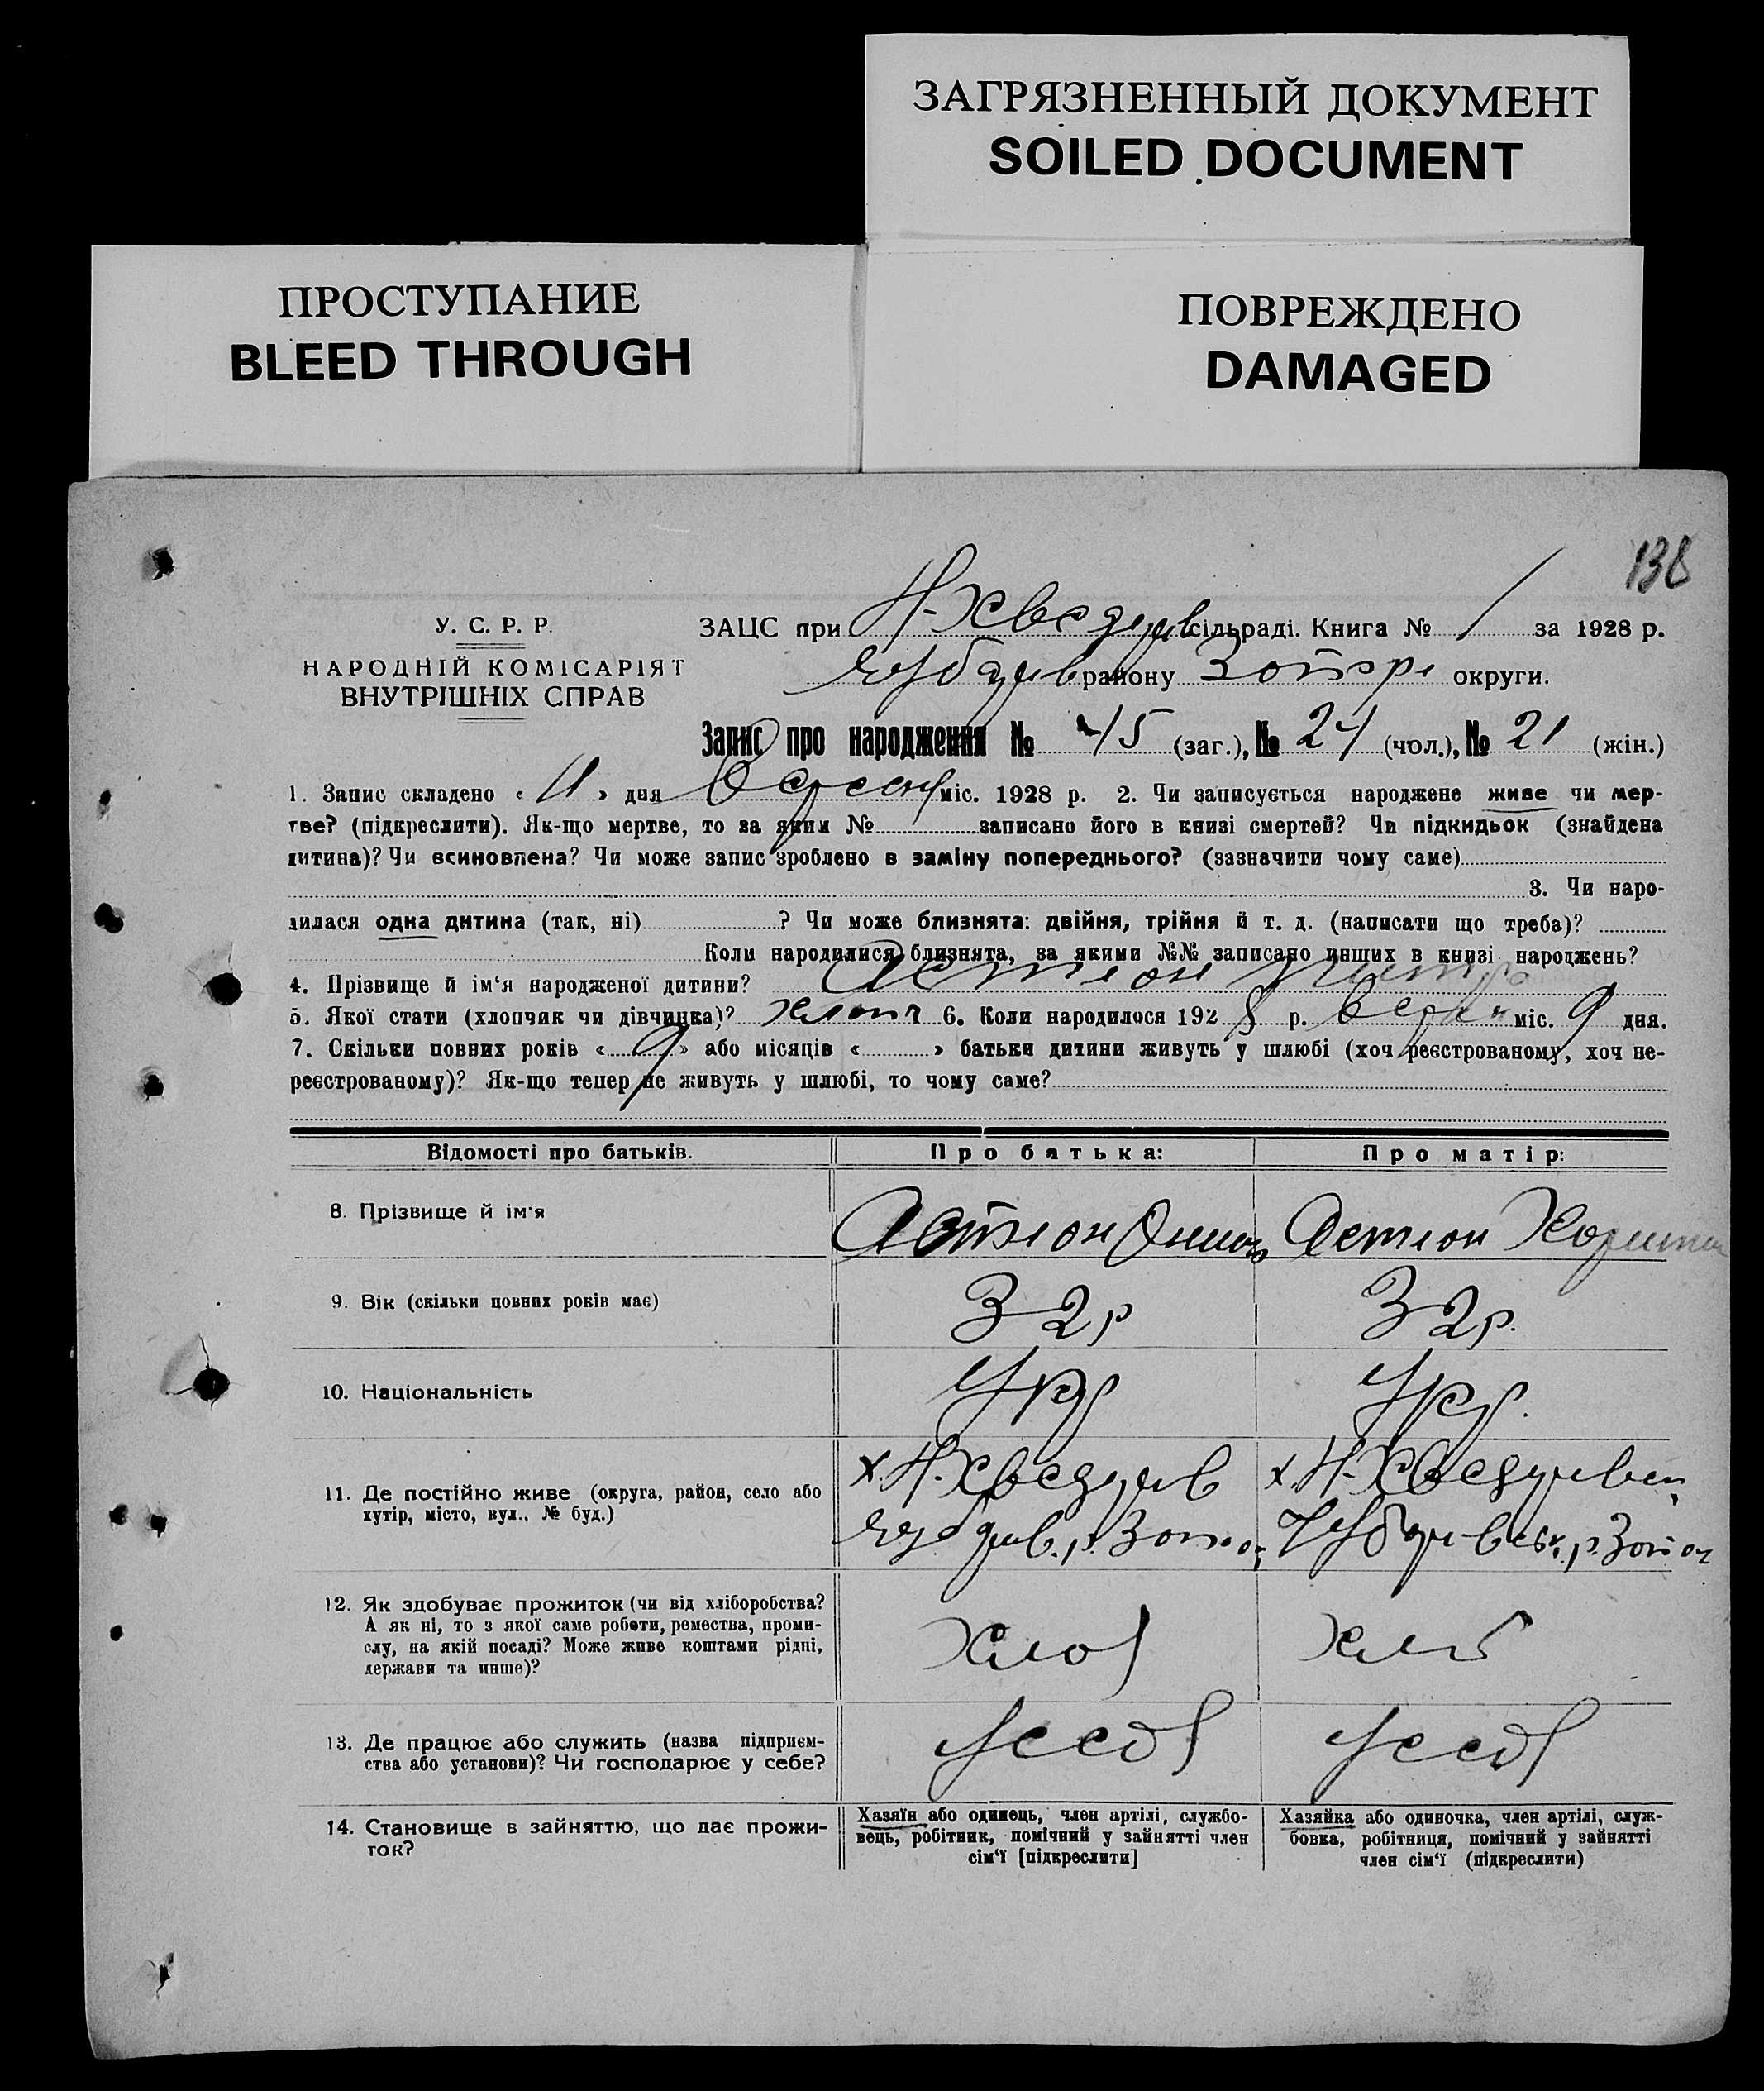 ЗАГРЯЗНЕННЫЙ ДОКУМЕНТ
SOILED DOCUMENT
ПРОСТУПАНИЕ
BLEED THROUGH
ПОВРЕЖДЕНО
DAMAGED
138
У. С. Р. Р.
НАРОДНІЙ КОМІСАРІЯТ
ВНУТРІШНІХ СПРАВ
ЗАЦС при сільраді. Книга № 1 за 1928 р.
району округи.
Запис про народження № 45 (заг.), № 24 (чол.), № 21 (жін.)
1. Запис складено « 11 » дня міс. 1928 р. 2. Чи записується народжене живе чи мер-
тве? (підкреслити). Як-що мертве, то за яким № записано його в книзі смертей? Чи підкидьок (знайдена
дитина)? Чи всиновлена? Чи може запис зроблено в заміну попереднього? (зазначити чому саме)
3. Чи наро-
дилася одна дитина (так, ні) ? Чи може близнята: двійня, трійня й т. д. (написати що треба)?
Коли народилися близнята, за якими №№ записано инших в книзі народжень?
4. Прізвище й ім‘я народженої дитини?
5. Якої стати (хлопчик чи дівчинка)? хлопч 6. Коли народилося 1928 р. міс. 9 дня.
7. Скільки повних років « 9 » або місяців « » батьки дитини живуть у шлюбі (хоч реєстрованому, хоч не-
реєстрованому)? Як-що тепер не живуть у шлюбі, то чому саме?
Відомості про батьків. Про батька: Про матір:
8. Прізвище й ім‘я
9. Вік (скільки повних років має) 32 р 32 р.
10. Національність Укр Укр.
11. Де постійно живе (округа, район, село або
хутір, місто, вул., № буд.)
12. Як здобуває прожиток (чи від хліборобства?
А як ні, то з якої саме роботи, ремества, проми-
слу, на якій посаді? Може живе коштами рідні,
держави та инше)?
13. Де працює або служить (назва підприєм-
ства або установи)? Чи господарює у себе? у себе у себе
14. Становище в зайняттю, що дає прожи-
ток?
Хазяїн або одинець, член артілі, службо-
вець, робітник, помічний у зайнятті член
сім‘ї [підкреслити]
Хазяйка або одиночка, член артілі, служ-
бовка, робітниця, помічний у зайнятті
член сім‘ї (підкреслити)